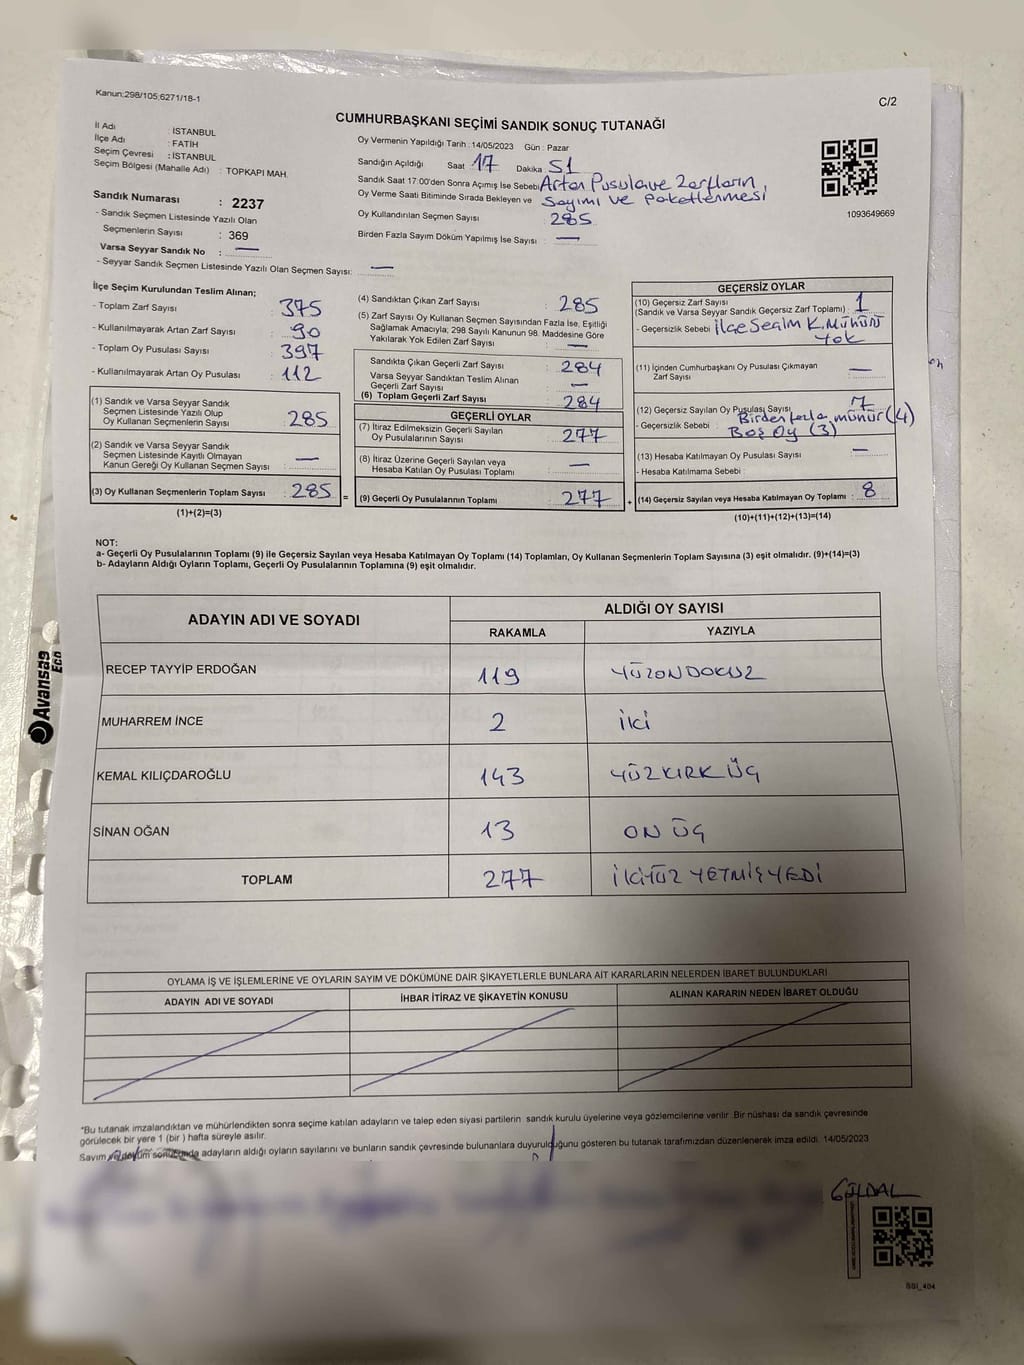 Kanun:298/105;6271/18-1
C/2
CUMHURBAŞKANI SEÇİMİ SANDIK SONUÇ TUTANAĞI
İl Adı : İSTANBUL
İlçe Adı : FATİH
Seçim Çevresi : İSTANBUL
Seçim Bölgesi (Mahalle Adı) : TOPKAPI MAH.
Oy Vermenin Yapıldığı Tarih :14/05/2023 Gün : Pazar
Sandığın Açıldığı Saat 17 Dakika 51
Sandık Saat 17:00'den Sonra Açımış İse Sebebi Artan Pusula ve Zarfların
Oy Verme Saati Bitiminde Sırada Bekleyen ve Sayımı ve Paketlenmesi
Oy Kullandırılan Seçmen Sayısı 285
Birden Fazla Sayım Döküm Yapılmış İse Sayısı —
1093649669
Sandık Numarası : 2237
- Sandık Seçmen Listesinde Yazılı Olan
Seçmenlerin Sayısı : 369
Varsa Seyyar Sandık No : —
- Seyyar Sandık Seçmen Listesinde Yazılı Olan Seçmen Sayısı: —
İlçe Seçim Kurulundan Teslim Alınan;
- Toplam Zarf Sayısı : 375
- Kullanılmayarak Artan Zarf Sayısı : 90
- Toplam Oy Pusulası Sayısı : 397
- Kullanılmayarak Artan Oy Pusulası : 112
(1) Sandık ve Varsa Seyyar Sandık
Seçmen Listesinde Yazılı Olup
Oy Kullanan Seçmenlerin Sayısı : 285
(2) Sandık ve Varsa Seyyar Sandık
Seçmen Listesinde Kayıtlı Olmayan
Kanun Gereği Oy Kullanan Seçmen Sayısı : —
(3) Oy Kullanan Seçmenlerin Toplam Sayısı : 285 =
(1)+(2)=(3)
(4) Sandıktan Çıkan Zarf Sayısı : 285
(5) Zarf Sayısı Oy Kullanan Seçmen Sayısından Fazla İse, Eşitliği
Sağlamak Amacıyla; 298 Sayılı Kanunun 98. Maddesine Göre
Yakılarak Yok Edilen Zarf Sayısı : —
Sandıkta Çıkan Geçerli Zarf Sayısı : 284
Varsa Seyyar Sandıktan Teslim Alınan
Geçerli Zarf Sayısı : —
(6) Toplam Geçerli Zarf Sayısı : 284
GEÇERLİ OYLAR
(7) İtiraz Edilmeksizin Geçerli Sayılan
Oy Pusulalarının Sayısı : 277
(8) İtiraz Üzerine Geçerli Sayılan veya
Hesaba Katılan Oy Pusulası Toplamı : —
(9) Geçerli Oy Pusulalarının Toplamı : 277 +
GEÇERSİZ OYLAR
(10) Geçersiz Zarf Sayısı
(Sandık ve Varsa Seyyar Sandık Geçersiz Zarf Toplamı) : 1
- Geçersizlik Sebebi : ilçe Seçim K. Mührü
Yok
(11) İçinden Cumhurbaşkanı Oy Pusulası Çıkmayan
Zarf Sayısı : —
(12) Geçersiz Sayılan Oy Pusulası Sayısı : 7
- Geçersizlik Sebebi : Birden fazla mühür (4)
Boş Oy (3)
(13) Hesaba Katılmayan Oy Pusulası Sayısı : —
- Hesaba Katılmama Sebebi :
(14) Geçersiz Sayılan veya Hesaba Katılmayan Oy Toplamı : 8
(10)+(11)+(12)+(13)=(14)
NOT:
a- Geçerli Oy Pusulalarının Toplamı (9) ile Geçersiz Sayılan veya Hesaba Katılmayan Oy Toplamı (14) Toplamları, Oy Kullanan Seçmenlerin Toplam Sayısına (3) eşit olmalıdır. (9)+(14)=(3)
b- Adayların Aldığı Oyların Toplamı, Geçerli Oy Pusulalarının Toplamına (9) eşit olmalıdır.
ADAYIN ADI VE SOYADI
ALDIĞI OY SAYISI
RAKAMLA YAZIYLA
RECEP TAYYİP ERDOĞAN 119 YÜZONDOKUZ
MUHARREM İNCE 2 İKİ
KEMAL KILIÇDAROĞLU 143 YÜZKIRK ÜÇ
SİNAN OĞAN 13 ON ÜÇ
TOPLAM 277 İKİYÜZ YETMİŞ YEDİ
OYLAMA İŞ VE İŞLEMLERİNE VE OYLARIN SAYIM VE DÖKÜMÜNE DAİR ŞİKAYETLERLE BUNLARA AİT KARARLARIN NELERDEN İBARET BULUNDUKLARI
ADAYIN ADI VE SOYADI İHBAR İTİRAZ VE ŞİKAYETİN KONUSU ALINAN KARARIN NEDEN İBARET OLDUĞU
*Bu tutanak imzalandıktan ve mühürlendikten sonra seçime katılan adayların ve talep eden siyasi partilerin sandık kurulu üyelerine veya gözlemcilerine verilir. Bir nüshası da sandık çevresinde
görülecek bir yere 1 (bir ) hafta süreyle asılır.
Sayım ve döküm sonucunda adayların aldığı oyların sayılarını ve bunların sandık çevresinde bulunanlara duyurulduğunu gösteren bu tutanak tarafımızdan düzenlenerek imza edildi. 14/05/2023
SSI_404
Avansas
Eco
Avansas